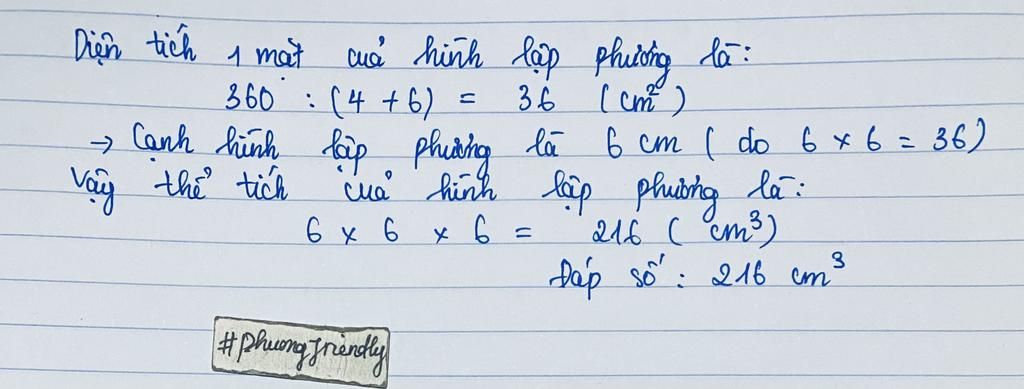 Diện tích 1 mặt của hình lập phương là:
360 : (4 + 6) = 36 (cm²)
→ Cạnh hình lập phương là 6 cm ( do 6 × 6 = 36)
Vậy thể tích của hình lập phương là:
6 × 6 × 6 = 216 ( cm³)
Đáp số : 216 cm³
#phuongfriendly